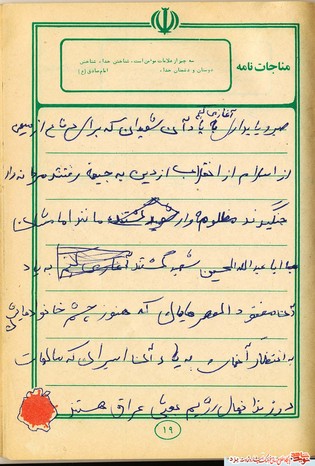 مناجات نامه
سه چیز از علامات مؤمن است، شناختن خدا، شناختن
دوستان و دشمنان خدا. امام صادق (ع)
آغاز می کنم
صبر و پایداری با یاد آن شهیدانی که برای دفاع از میهن
از اسلام از انقلاب از دین به جبهه رفتند مردانه
جنگیدند مظلوم وار شهید گشتند مانند امامشان
ابا عبدالله الحسین شهید گشتند به یاد
آن مفقود الاثرهایمان که هنوز چشم خانواده‌هایش
به انتظار آنهاست به یاد آن اسیرانی که سالهاست
در زندانهای رژیم بعثی عراق هستند
۱۹